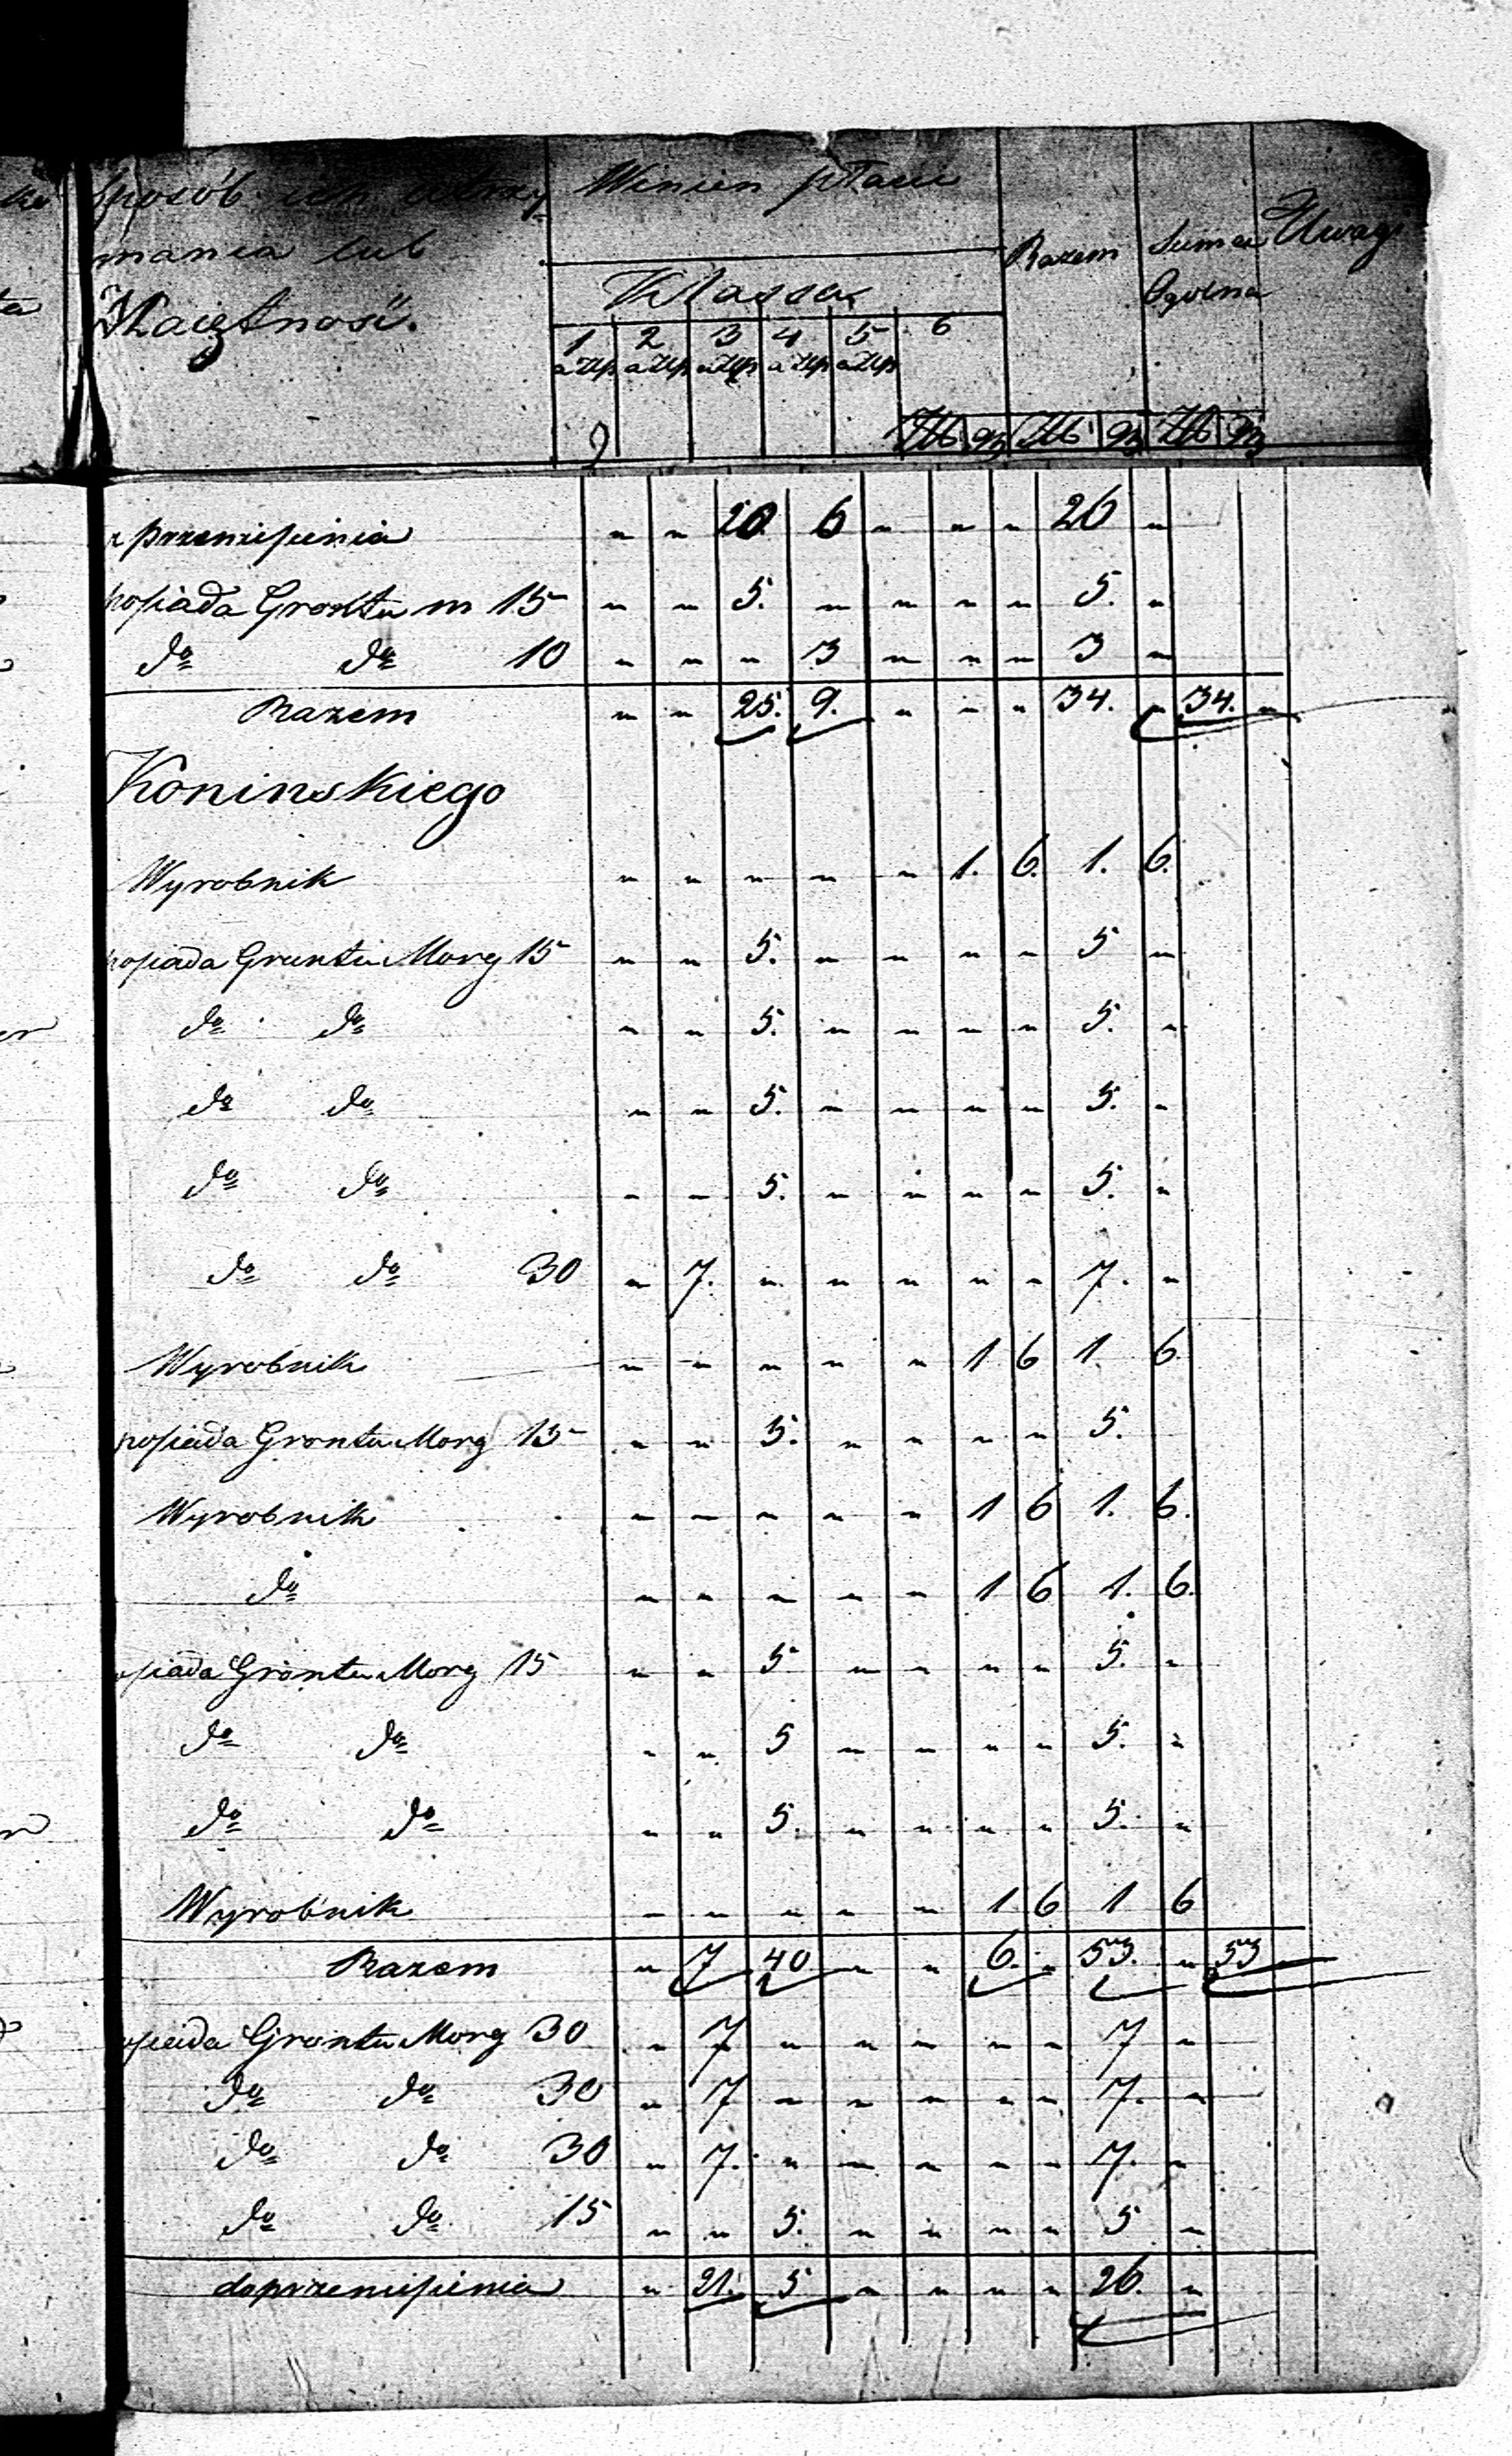 Sposób ich utrzy- Winien płacić
mania lub Razem Suma Uwagi
Maiętność. Klassa Ogólna
1 2 3 4 5 6
a Złp a Złp a Złp a Złp a Złp
Złt gr Złt gr Złt gr
z przeniesienia " " 20 6 " " " 26 "
posiada Grontu m 15 " " 5. " " " " 5. "
do do 10 " " " 3 " " " 3 "
Razem " " 25. 9. " " " 34. " 34. "
Koninskiego
Wyrobnik " " " " " 1. 6. 1. 6.
posiada Gruntu Morg 15 " " 5. " " " " 5 "
do do " " 5. " " " " 5. "
do do " " 5. " " " " 5. "
do do " " 5. " " " " 5. "
do do 30 " 7. " " " " " 7. "
Wyrobnik " " " " " 1 6 1 6.
posiada Grontu Morg 15 " " 5. " " " " 5.
Wyrobnik " " " " " 1 6 1. 6.
do " " " " " 1 6 1. 6.
osiada Grontu Morg 15 " " 5 " " " " 5. "
do do " " 5 " " " " 5. "
do do " " 5. " " " " 5. "
Wyrobnik " " " " " 1 6 1 6
Razem " 7 40 " " 6. " 53. " 53
osiada Grontu Morg 30 " 7 " " " " " 7 "
do do 30 " 7 " " " " " 7. "
do do 30 " 7. " " " " " 7. "
do do 15 " " 5. " " " " 5 "
do przeniesienia " 21. 5 " " " " 26. "